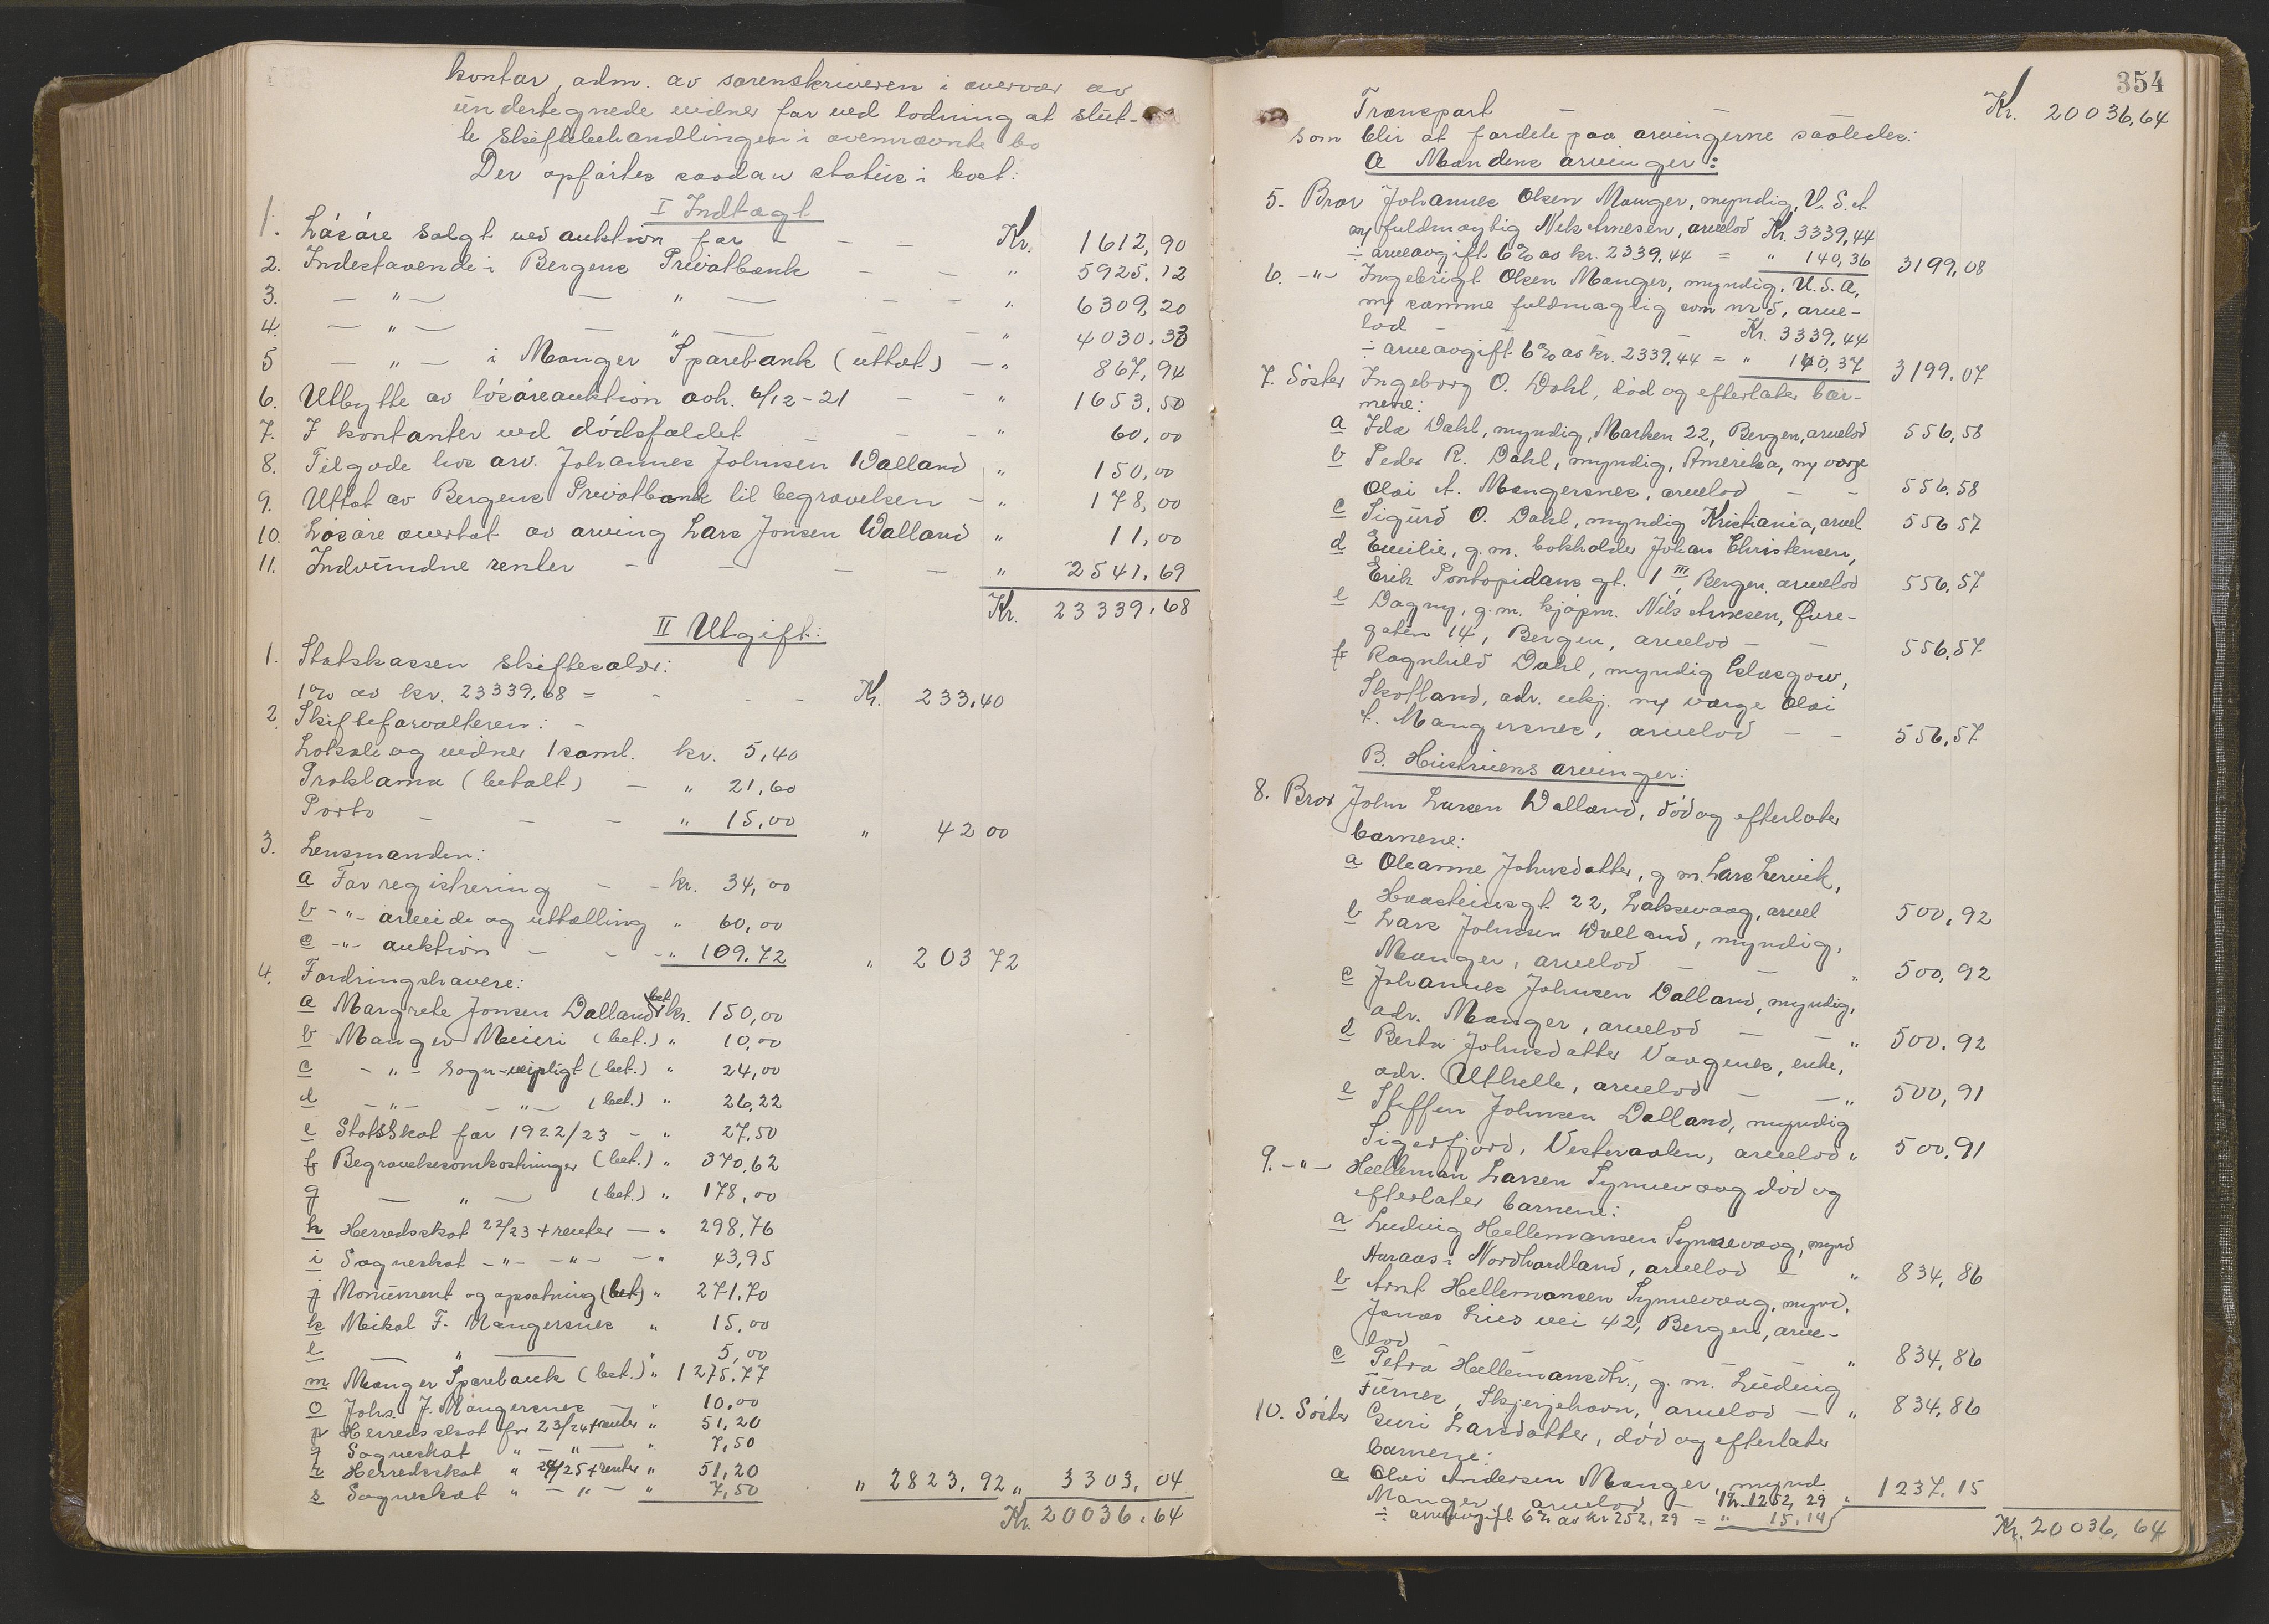 kontor, adm. av sorenskriveren i overvær av
undertegnede vidner for ved lodning at slut-
te skiftebehandlingen i ovennævnte bo
Der opførtes saadan status i boet:
I Indtægt
1. Løsøre solgt ved auktion for - - - Kr. 1612,90
2. Indestaaende i Bergens Privatbank - - " 5925,12
3. - " - - " - - - " 6309,20
4. - " - - " - - - " 4030,33
5 - " - i Manger Sparebank (uttat) - " 867,94
6. Utbytte av løsøreauktion avh. 6/12-21 - - " 1653,50
7. I kontanter ved dødsfaldet - - - " 60,00
8. Tilgode hos arv. Johannes Johnsen Dalland " 150,00
9. Uttat av Bergens Privatbank til begravelsen - " 178,00
10. Løsøre overtat av arving Lars Jonsen Dalland " 11,00
11. Indvundne renter - - - - " 2541,69
Kr. 23339,68
II Utgift:
1. Statskassen skiftesalær:
1% av kr. 23339,68 = - - - Kr. 233,40
2. Skifteforvalteren: -
Lokale og vidner 1 saml. kr. 5,40
Proklama (betalt) - " 21,60
Porto - - - " 15,00 " 42 00
3. Lensmanden:
a For registrering - - kr. 34,00
b - " - arbeide og uttælling " 60,00
c - " - auktion - - - " 109.72 " 203 72
4. Fordringshavere:
a Margrete Jonsen Dalland bet. kr. 150,00
b Manger Meieri (bet.) " 10,00
c - " - sogn-veipligt (bet.) " 24,00
d - " - - " - (bet.) " 26,22
e StatsSkat for 1922/23 - " 27,50
f Begravelsesomkostninger (bet.) " 370,62
g - " - (bet.) " 178,00
h Herredsskat 22/23 + renter - " 298,76
i Sogneskat - " - - " - - " 43,95
j Monument og opsætning (bet) " 271.70
k Mikal F. Mangersnes " 15,00
l - " - " 5,00
m Manger Sparebank (bet.) " 1275.77
o Johs. J. Mangersnes - " 10,00
p Herredsskat for 23/24 + renter " 51,20
q Sogneskat " - " - " 7,50
r Herredsskat " 24/25 + renter " 51,20
s Sogneskat " - " - " 7,50 " 2823,92 " 3303,04
Kr. 20036,64
354
Transport - - Kr. 20036,64
som blir at fordele paa arvingerne saaledes:
A Mandens arvinger:
5. Bror Johannes Olsen Manger, myndig, U.S.A.
ny fuldmægtig Nils Arnesen, arvelod Kr. 3339,44
÷ arveavgift 6% av kr. 2339,44 = " 140,36 3199,08
6. - " - Ingebrigt Olsen Manger, myndig, U.S.A,
ny samme fuldmægtig som nr 5, arve-
lod - - - Kr. 3339,44
÷ arveavgift 6% av kr. 2339,44 = " 140,37 3199,07
7. Søster Ingeborg O. Dahl, død og efterlater bar-
nene:
a Ida Dahl, myndig, Marken 22, Bergen, arvelod 556,58
b Peder R. Dahl, myndig, Amerika, ny værge
Olai A. Mangersnes, arvelod - - 556,58
c Sigurd O. Dahl, myndig Kristiania, arvel. 556 57
d Emilie, g.m. bokholder Johan Christensen,
Erik Pontopidans gt. 1 III, Bergen, arvelod 556,57
e Dagny, g.m. kjøpm. Nils Arnesen, Øvre-
gaten 14, Bergen, arvelod - - 556,57
f Ragnhild Dahl, myndig Glasgow,
Skotland, adr. ukj. ny værge Olai
A. Mangersnes, arvelod - - 556,57
B. Hustruens arvinger:
8. Bror John Larsen Dalland, død og efterlater
barnene:
a Oleanne Johnsdatter, g m. Lars Lervik,
Haasteinsgt. 22, Laksevaag, arvel 500,92
b Lars Johnsen Dalland, myndig,
Manger, arvelod - - " 500,92
c Johannes Johnsen Dalland, myndig,
adr. Manger, arvelod - - " 500.92
d Berta Johnsdatter Vaagenes, enke,
adr. Uthelle, arvelod - - " 500,91
e Steffen Johnsen Dalland, myndig
Sigerfjord, Vesteraalen, arvelod " 500,91
9. - " - Helleman Larsen Synnevaag død og
efterlater barnene:
a Ludvig Hellemansen Synnevaag, mynd
Auraas i Nordhordland, arvelod - " 834,86
b Arnt Hellemansen Synnevaag, mynd,
Jonas Lies vei 42, Bergen, arve-
lod " 834,86
c Petra Hellemansdtr., g. m. Ludvig
Furnes, Skjerjehavn, arvelod - " 834,86
10. Søster Guri Larsdatter, død og efterlater
barnene:
a Olai Andersen Manger, mynd.
Manger, arvelod - Kr. 1252,29 " 1237.15
÷ arveavgift 6% av kr 252,29 = " 15,14
Kr. 20036,64